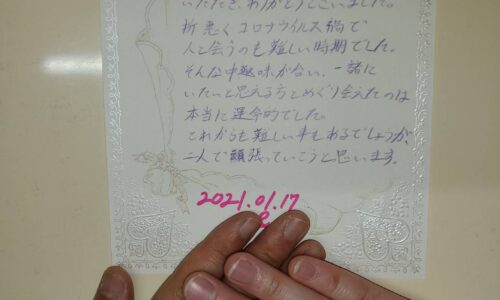 いただき、ありがとうございました。
折悪くコロナウイルス禍で
人と会うのも難しい時期でした。
そんな中趣味が合い、一緒に
いたいと思える方とめぐり会えたのは
本当に運命的でした。
これからも難しい事もあるでしょうが、
二人で頑張っていこうと思います。
2021.01.17